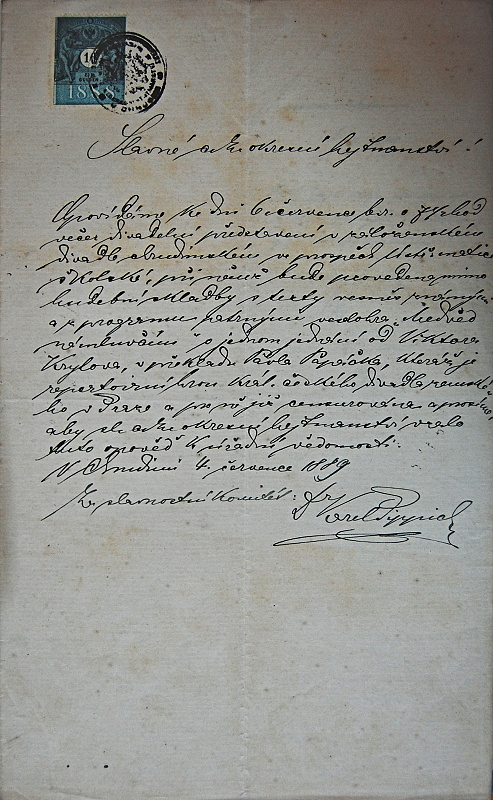 1888
Slavné c.k. okresní hejtmanství!
Opovídáme ke dni 6 července b.r. o ½8 hod
večer divadelní představení v
divadle chrudimském ve prospěch Ústř. matice
školské, při němž bude provedena mimo
hudební skladby s texty vesměs známými
a z programu patrnými veselohra: Medvěd
námluvčím o jednom jednání od Viktora
Krylova, v překladu Pavla Papáčka, kteráž je
repertoirní hrou král. českého divadla zemské-
ho v Praze a pro ně již censurována a prosíme,
aby sl. c.k. okresní hejtmanství vzalo
tuto opověď k úřední vědomosti.
V Chrudimi 4. července 1889
Za slavnostní komitét: Dr
Karel Pippich